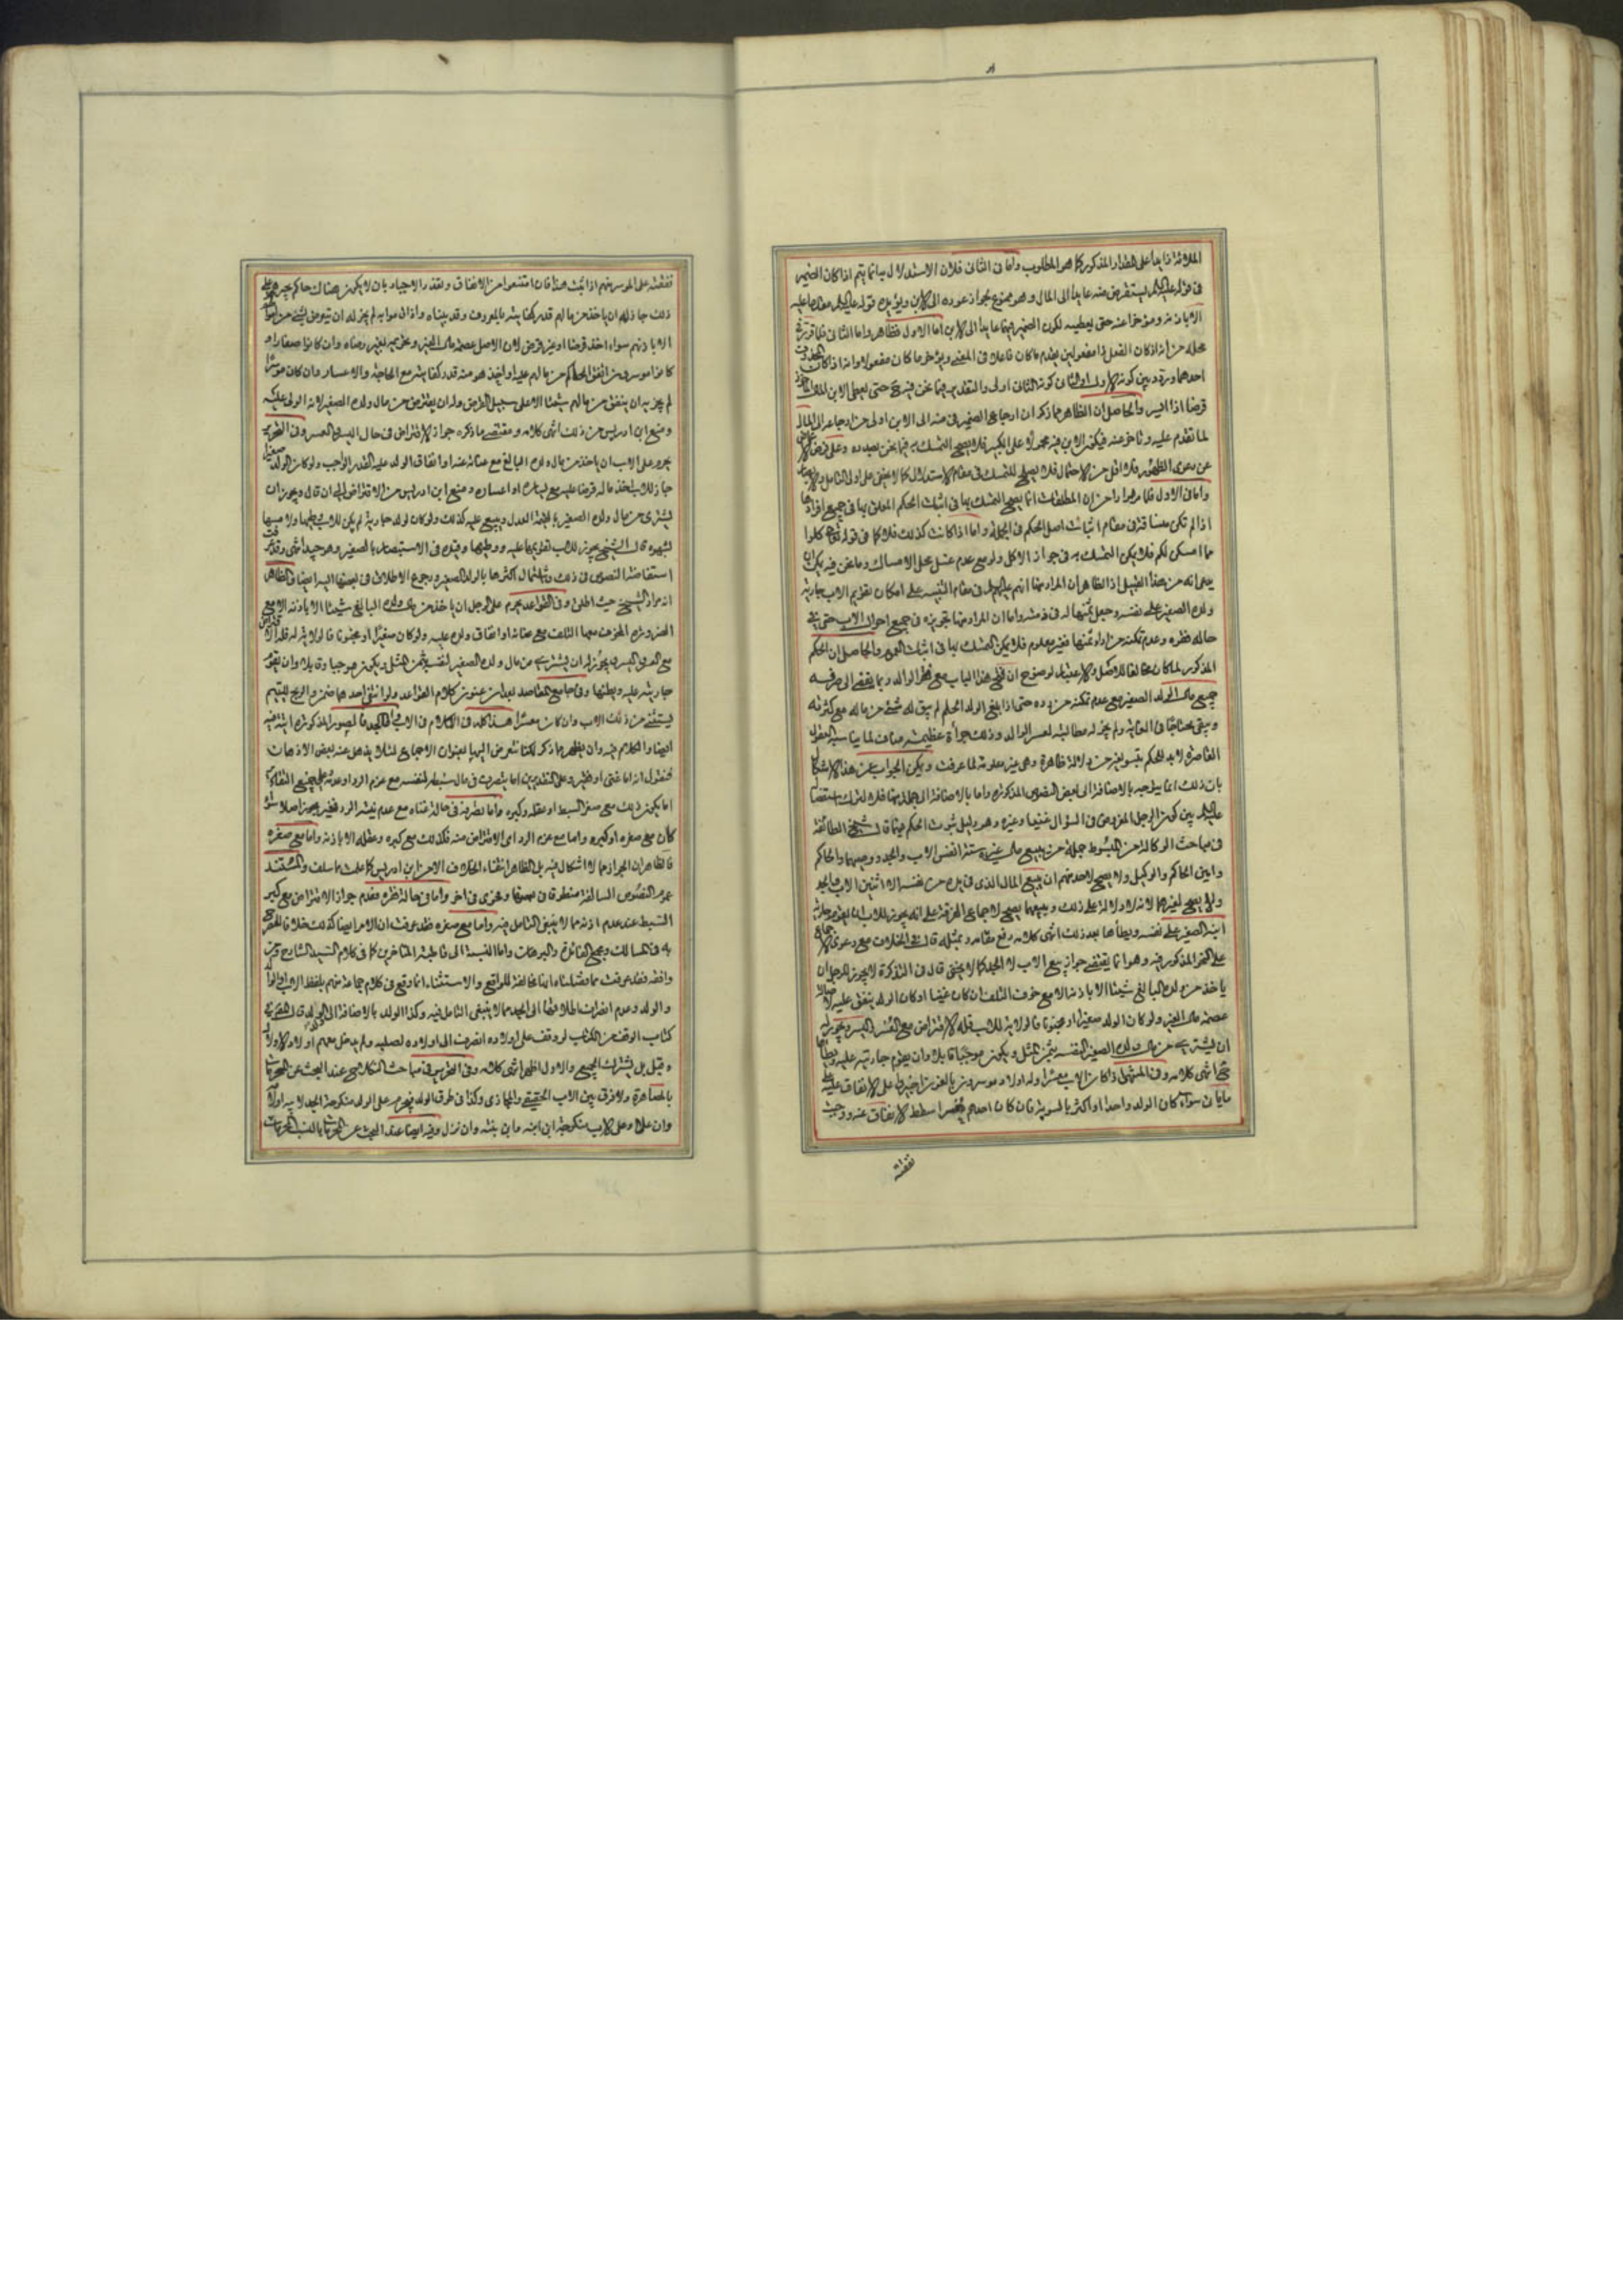 الملاقة اذا بها على المقدار المذكور كما هو المطلوب واما فى الثانى فلان الاستدلال بها انما يتم اذا كان الضمير
فى قوله عليه السلام يستقرض منه عايدا الى المال وهو ممنوع بجواز عوده الى الابن ويؤيده قوله عليه السلام
الا باذنه ومؤخرا عنه حتى يعطيه لكون الضمير فيهما عايدا الى الابن اما الاول فظاهر واما الثانى فلما
محله من انه اذا كان الفعل ذا مفعولين يقدم ما كان فاعلا فى المعنى ويؤخر ما كان مفعولا وانه اذا كان
احدهما وتردد بين كونه الاول او الثانى كونه الثانى اولى والتقدير فيما نحن فيه حتى يعطى الابن
قرضا اذا ايسر والحاصل ان الظاهر مما ذكر ان ارجاع الضمير فى منه الى الابن اولى من ارجاعه الى المال
لما تقدم عليه وتاخر عنه فيكون الابن فيه محمولا على الكبير فلا يصح التمسك به فيما نحن بصدده وعلى فرض
عن دعوى الظهور فلا اقل من الاحتمال فلا يصلح للتمسك فى مقام الاستدلال كما لا يخفى على اولى التامل
واما فى الاول فلما مر مرارا من ان المطلقات انما يصح التمسك بها فى اثبات الحكم المعلق بها فى جميع افرادها
اذا لم تكن مساقة فى مقام اثبات اصل الحكم فى الجملة واما اذا كانت كذلك فلا كما فى قوله تعالى كلوا
مما امسكن لكم فلا يمكن التمسك به فى جواز الاكل ولو مع عدم غسل محل الامساك وما نحن فيه يمكن ان
يدعى انه من هذا القبيل اذ الظاهر ان المراد منها انهم عليهم السلام فى مقام التنبيه على امكان تقويم الاب جارية
ولده الصغير على نفسه وجعل ثمنها له فى ذمته واما ان المراد منها تجويزه فى جميع احوال الاب حتى فى
حالة فقره وعدم تمكنه من اداء ثمنها فغير معلوم فلا يمكن التمسك بها فى اثبات العموم والحاصل ان الحكم
المذكور لما كان مخالفا للاصل والاعتبار لوضوح ان فتح هذا الباب مع فقر الوالد ربما يفضى الى صرفه
جميع مال الولد الصغير مع عدم تمكنه من رده حتى اذا بلغ الولد الحلم لم يبق له شئ من ماله مع كثرته
ويبقى محتاجا فى الغاية ولم يجز له مطالبته لعسر الوالد وذلك جرأة عظيمة مناف لما يناسبه العقول
القاصرة لابد للحكم بتسويغه من دلالة ظاهرة وهى غير معلومة لما عرفت ويمكن الجواب عن هذا الاشكال
بان ذلك انما يتوجه بالاضافة الى بعض النصوص المذكورة واما بالاضافة الى جملة منها فلا لترك
عليه السلام بين كون الرجل المفروض فى السؤال غنيا وغيره وهو دليل ثبوت الحكم فيهما قال شيخ الطائفة
فى مباحث الوكالة من المبسوط جملة من يبيع مال غيره ستة انفس الاب والجد ووصيهما والحاكم
وامين الحاكم والوكيل ولا يصح لاحد منهم ان يبيع المال الذى فى يده من نفسه الا اثنين الاب والجد
ولا يصح لغيرهما لانه لا دلالة على ذلك وبيعهما يصح لاجماع الفرقة على انه يجوز للاب ان يقوم جارية
ابنه الصغير على نفسه ويطأها بعد ذلك انتهى كلامه رفع مقامه وبمثله قال فى الخلاف مع دعوى
على النحو المذكور فيه وهو انما يقتضى جواز بيع الاب لا الجد كما لا يخفى قال فى التذكرة لا يجوز للرجل ان
ياخذ من ولده البالغ شيئا الا باذنه الا مع خوف التلف ان كان غنيا او كان الولد ينفق عليه
عصمة مال الغير ولو كان الولد صغيرا او مجنونا فالولاية للاب فله الاقتراض مع العسر واليسر ويجوز له
ان يشترى من مال ولده الصغير لنفسه بثمن المثل ويكون موجبا قابلا وان يقوم جاريته عليه ويطأها
انتهى كلامه وفى المنتهى اذا كان الاب معسرا وله اولاد موسرون بالغون اخبروا على الانفاق عليه
سواء كان الولد واحدا او اكثر بالسوية فان كان احدهم معسرا سقط الانفاق عنه ووجبت
نفقته
نفقته على الموسر منهم اذا ثبت هذا فان امتنعوا من الانفاق وتعذر الاجبار بان لا يكون هناك حاكم يجبرهم على
ذلك جاز له ان ياخذ من مالهم قدر كفايته بالمعروف وقد بيناه واذا قاموا به لم يجز له ان يتعرض لشئ من اموالهم
الا باذنهم سواء اخذ قرضا او غير قرض لان الاصل عصمة مال الغير وتحريمه بغير رضاه وان كانوا صغارا و
كانوا موسرين انفق الحاكم من مالهم عليه او اخذ هو منه قدر كفايته مع الحاجة والاعسار وان كان موسرا
لم يجز له ان ينفق من مالهم شيئا الا على سبيل القرض وله ان يقترض من مال ولده الصغير لانه الولى عليه
ومنع ابن ادريس من ذلك انتهى كلامه ومقتضى ما ذكره جواز الاقتراض فى حال اليسر والعسر وفى التحرير
يحرم على الاب ان ياخذ من مال ولده البالغ مع غنائه عنه او انفاق الولد عليه القدر الواجب ولو كان الولد صغيرا
جاز للاب اخذ ماله قرضا عليه مع يساره او اعساره ومنع ابن ادريس من الاقتراض الى ان قال ويجوز ان
يشترى من مال ولده الصغير بالقيمة العدل ويبيع عليه كذلك ولو كان لولده جارية لم يكن للاب وطيها ولا مسها
بشهوة قال الشيخ يجوز للاب تقويمها عليه ووطيها وقيده فى الاستبصار بالصغير وهو جيد انتهى وقد عرفت
استفاضة النصوص فى ذلك واشتمال اكثرها بالولد الصغير ورجوع الاطلاق فى بعضها اليه ايضا فالظاهر
انه مراد الشيخ حيث اطلق وفى القواعد يحرم على الرجل ان ياخذ من مال ولده البالغ شيئا الا باذنه الا مع
الضرورة المخوف معها التلف مع غنائه او انفاق ولده عليه ولو كان صغيرا او مجنونا فالولاية له فله الاقتراض
مع العسر واليسر يجوز له ان يشترى من مال ولده الصغير لنفسه بثمن المثل ويكون موجبا وقابلا وان يقوم
جاريته عليه ويطئها وفى جامع المقاصد بعد ان عنون كلام القواعد ولو انتفى احدهما ضمن والربح لليتيم
يستثنى من ذلك الاب وان كان معسرا هذا كله فى الكلام فى الاب واما الجد فالصور المذكورة اتية فيه
ايضا والكلام فيه وان يظهر مما ذكر لكنا نتعرض اليها بعنوان الاجمال لئلا يذهل عنه بعض الاذهان
فنقول انه اما غنى او فقير وعلى التقديرين اما يتصرف فى مال سبطه لنفسه مع عزم الرد او عدمه وعلى جميع التقادير
اما يكون ذلك مع صغر السبط او عقله وكبره واما تصرفه فى حالة غناه مع عدم نية الرد فغير مجوز اصلا سواء
كان مع صغره او كبره واما مع عزم الرد اى الاقتراض منه فكذلك مع كبره وعقله الا باذنه واما مع صغره
فالظاهر ان الجواز مما لا اشكال فيه بل الظاهر انتفاء الخلاف الا من ابن ادريس كما علمت مما سلف والمستند
عموم النصوص السالفة منطوقا فى بعضها وفحوى فى اخر واما فى حالة فقره فعدم جواز الاقتراض مع كبر
السبط عند عدم اذنه مما لا ينبغى التامل فيه واما مع صغره فقد عرفت ان الامر ايضا كذلك خلافا
فى المسالك ومجمع الفائدة والبرهان واما النسبة الى قاطبة المتاخرين كما فى كلام السيد الشارح ومن
وافقه فقد عرفت مما فصلناه انها مخالفة للواقع والاستثناء انما وقع فى كلام جماعة منهم بلفظ الاب او الوالد
والولد وعدم انصراف اطلاقهما الى الجد مما لا ينبغى التامل فيه وكذا الولد بالاضافة الى ولد الولد قال
كتاب الوقف من الكتاب لو وقف على اولاده انصرف الى اولاده لصلبه ولم يدخل معهم اولاد الاولاد
وقيل بل يشترك الجميع والاول اظهر انتهى كلامه وفى التحرير فى مباحث النكاح عند البحث عن المحرمات
بالمصاهرة ولا فرق بين الاب الحقيقى والمجازى وكذا فى طرف الولد فيحرم على الولد منكوحة الجد لابيه او لامه
وان علا وعلى الاب منكوحة ابن ابنه وابن بنته وان نزل وفيه ايضا عند البحث عن المحرمات بالنسب